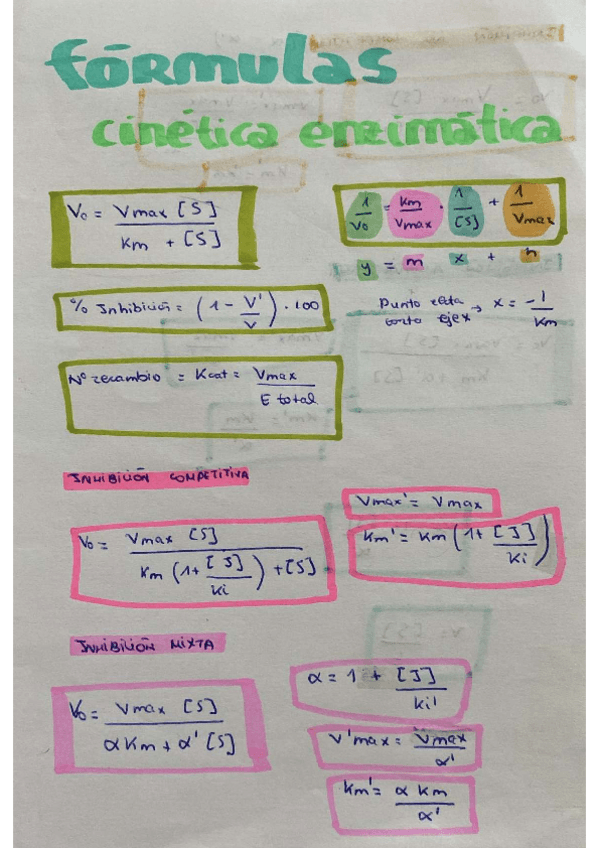 fórmulas
cinética enzimática
V₀ = Vmax [S] / Km + [S]
1/V₀ = Km/Vmax · 1/[S] + 1/Vmax
y = m x + n
% Inhibición = (1 - V'/V) · 100
Punto recta
corta eje x → x = -1/Km
Nº recambio = Kcat = Vmax / E total
INHIBICIÓN COMPETITIVA
Vmax' = Vmax
V₀ = Vmax [S] / Km (1 + [I]/Ki) + [S]
Km' = Km (1 + [I]/Ki)
INHIBICIÓN MIXTA
α = 1 + [I]/Ki'
V₀ = Vmax [S] / αKm + α' [S]
V'max = Vmax/α'
Km' = α Km/α'